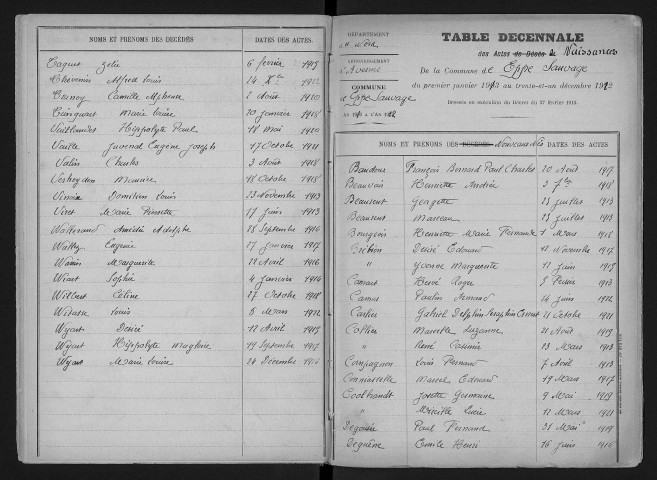 NOMS ET PRÉNOMS DES DÉCÉDÉS DATES DES ACTES.
Taquet Zélie 6 février 1915
Thévenin Alfred Louis 24 Xbre 1922
Camille Alphonse 2 Août 1920
Marie Louise 20 janvier 1918
Hippolyte Paul 18 Mai 1920
Vaille Juvenal Eugène Joseph 17 Octobre 1921
Valin Charles 3 Août 1918
Maurice 18 Octobre 1918
Domitien Louis 23 Novembre 1913
Viret Marie 17 juin 1913
Amédée Adolphe 28 Septembre 1916
Wattly Eugénie 27 janvier 1917
Marguerite 22 Avril 1916
Wiart Sophie 4 janvier 1914
Wilbert Céline 27 Octobre 1918
Louis 8 Mars 1922
Wyart Désiré 12 Avril 1915
Wyart Hippolyte 19 Septembre 1917
Wyart Marie Louise 24 Décembre
DÉPARTEMENT
du Nord
ARRONDISSEMENT
d'Avesnes
COMMUNE
d'Eppe Sauvage
TABLE DÉCENNALE
des Actes de Décès de Naissances
De la Commune d'Eppe Sauvage
du premier janvier 1913 au trente-et-un décembre 1922
Dressée en exécution du Décret du 27 février 1913.
NOMS ET PRÉNOMS DES DÉCÉDÉS Nouveaux nés DATES DES ACTES
Baudour François Bernard Paul Charles 20 Août 1917
Beauvais Henriette Andrée 3 1918
Beausent Georgette 23 juillet 1913
Beausent Marceau 23 juillet 1913
Bourgeois Henriette Marie Fernande 1 Mars 1918
Désiré Edouard 12 Novembre 1917
" Yvonne Marguerite 12 juin 1919
Hervé Roger 5 1913
Camus Paulin Armand 24 juin 1922
Carlier Gabriel Delphin Séraphin 21 Octobre 1921
Collier Marcelle Suzanne 21 Août 1919
" René Casimir 13 Mars 1913
Compagnon Louis Fernand 7 Avril 1913
Marcel Edouard 19 Mars 1917
Coolbrandt Josette Germaine 9 Mai 1919
" Mireille Lucie 12 Mars 1921
Paul Fernand 31 Mai 1919
Emile Henri 16 juin 1916